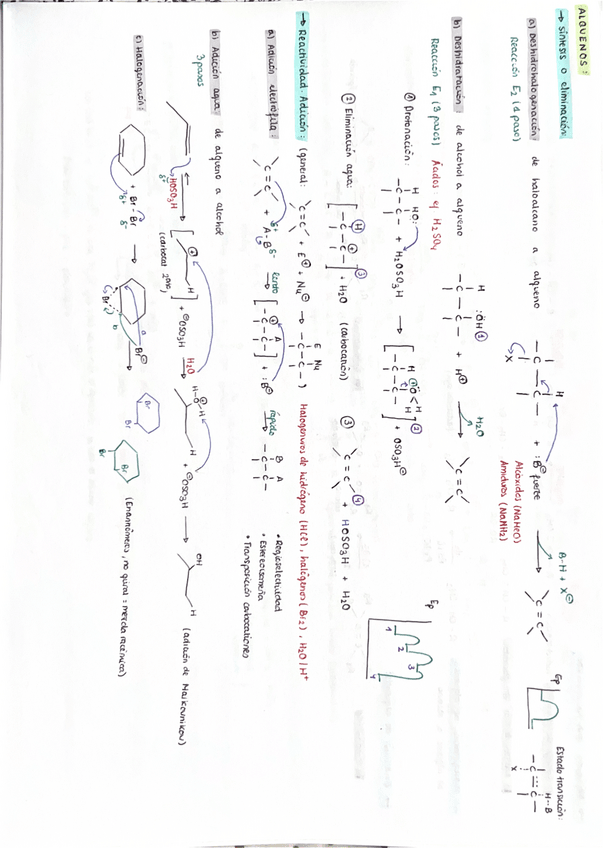 ALQUENOS:
→ Síntesis o eliminación:
a) Deshidrohalogenación de haloalcano a alqueno
Reacción E2 (1 paso)
-C-C- + :B⊖ fuerte → C=C
H
X
B-H + X⊖
Alcóxidos (NaMeO)
Amiduros (NaNH2)
Ep
Estado transición:
H--B
-C=C-
X
b) Deshidratación de alcohol a alqueno
Reacción E1 (3 pasos) Ácidos ej H2SO4
H :ÖH ①
-C-C- + H⊕ → C=C
H2O
① Protonación:
H HO:
-C-C- + H2OSO3H → [-C-C-] ② + OSO3H⊖
② Eliminación agua:
[-C-C-] ③ + H2O (carbocatión)
③ C=C ④ + HOSO3H + H2O
Ep
1 2 3 4
→ Reactividad. Adición: (general: C=C + E⊕ + Nu⊖ → -C-C-) Halogenuros de hidrógeno (HCl), halógenos (Br2), H2O/H+
E Nu
a) Adición electrófila:
C=C + A-B → [-C-C-] + :B⊖ → -C-C-
δ+ δ- lento rápido
A B A
• Regioselectividad
• Estereoisomería
• Transposición carbocationes
b) Adición agua de alqueno a alcohol
3 pasos
HOSO3H
δ- δ+
(carbocat 2ario)
+ ⊖OSO3H
H2O
H-O-H
H
+ ⊖OSO3H
OH
H
(adición de Markovnikov)
c) Halogenación:
+ Br-Br
δ+ δ-
Br⊖
:Br:
Br
Br
Br
Br
(Enantiómeros, no quiral: mezcla racémica)